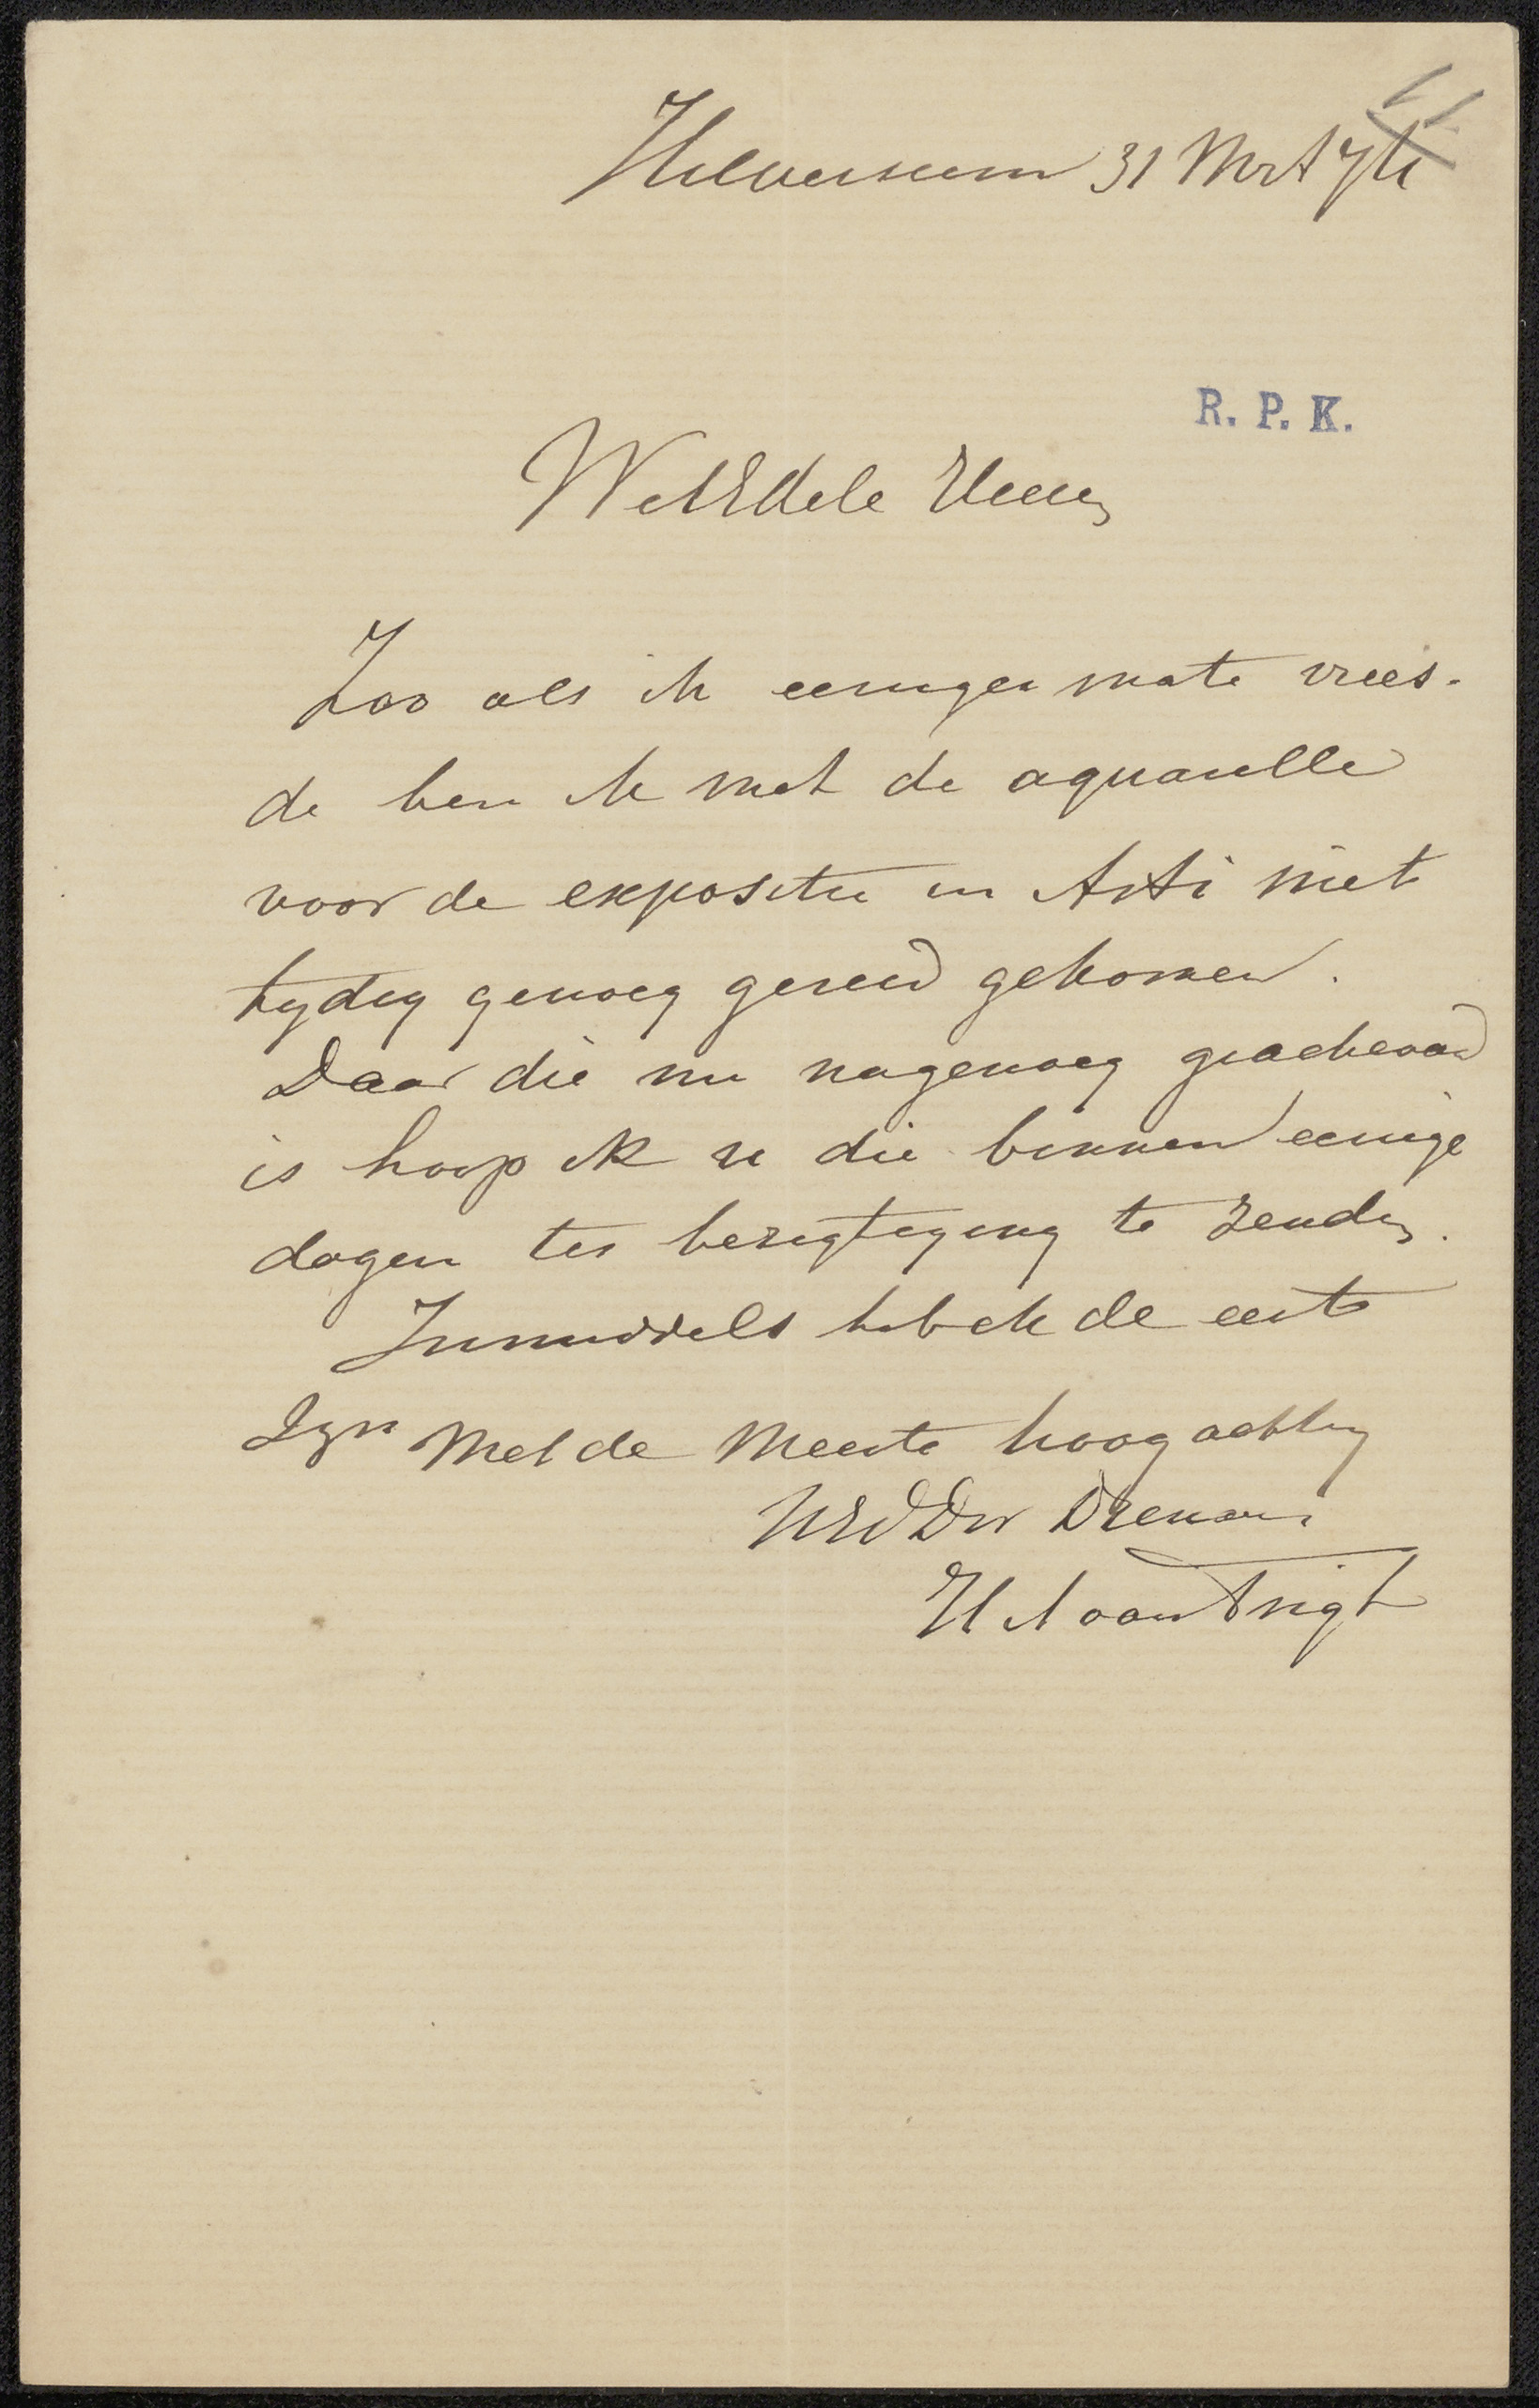 Hilversum 31 Mrt
R. P. K.
WelEdele Heer
Zoo als ik eenigermate vrees-
de ben ik met de aquarelle
voor de expositie in Arti niet
tydig genoeg gereed gekomen.
Daar die nu nagenoeg geacheveerd
is hoop ik u die binnen eenige
dagen ter bezigtiging te zenden.
Inmiddels heb ik de eer te
Zyn Met de Meeste hoogachting
UEd Dw Dienaar
H A van Trigt